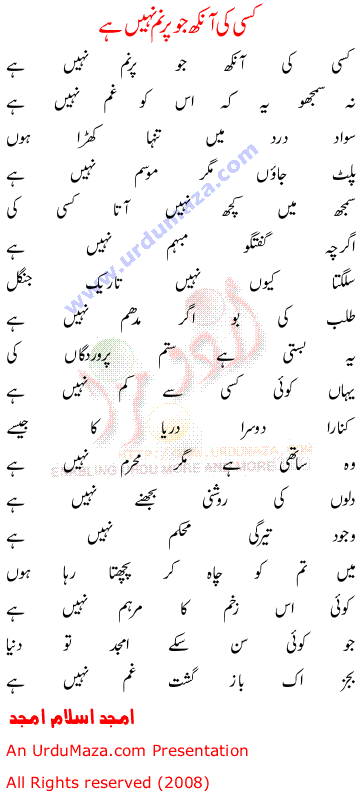 کسی کی آنکھ جو پرنم نہیں ہے
کسی کی آنکھ جو پرنم نہیں ہے
نہ سمجھو یہ کہ اس کو غم نہیں ہے
سواد درد میں تنہا کھڑا ہوں
پلٹ جاؤں مگر موسم نہیں ہے
سمجھ میں کچھ نہیں آتا کسی کی
اگرچہ گفتگو مبہم نہیں ہے
سلگتا کیوں نہیں تاریک جنگل
طلب کی بو اگر مدھم نہیں ہے
یہ بستی ہے ستم پروردگاں کی
یہاں کوئی کسی سے کم نہیں ہے
کنارا دوسرا دریا کا جیسے
وہ ساتھی ہے مگر محرم نہیں ہے
دلوں کی روشنی بجھنے نہیں ہے
وجود تیرگی محکم نہیں ہے
میں تم کو چاہ کر پچھتا رہا ہوں
کوئی اس زخم کا مرہم نہیں ہے
جو کوئی سن سکے امجد تو دنیا
بجز اک باز گشت غم نہیں ہے
امجد اسلام امجد
An UrduMaza.com Presentation
All Rights reserved (2008)
www.urdumaza.com
HTTP://WWW.URDUMAZA.COM